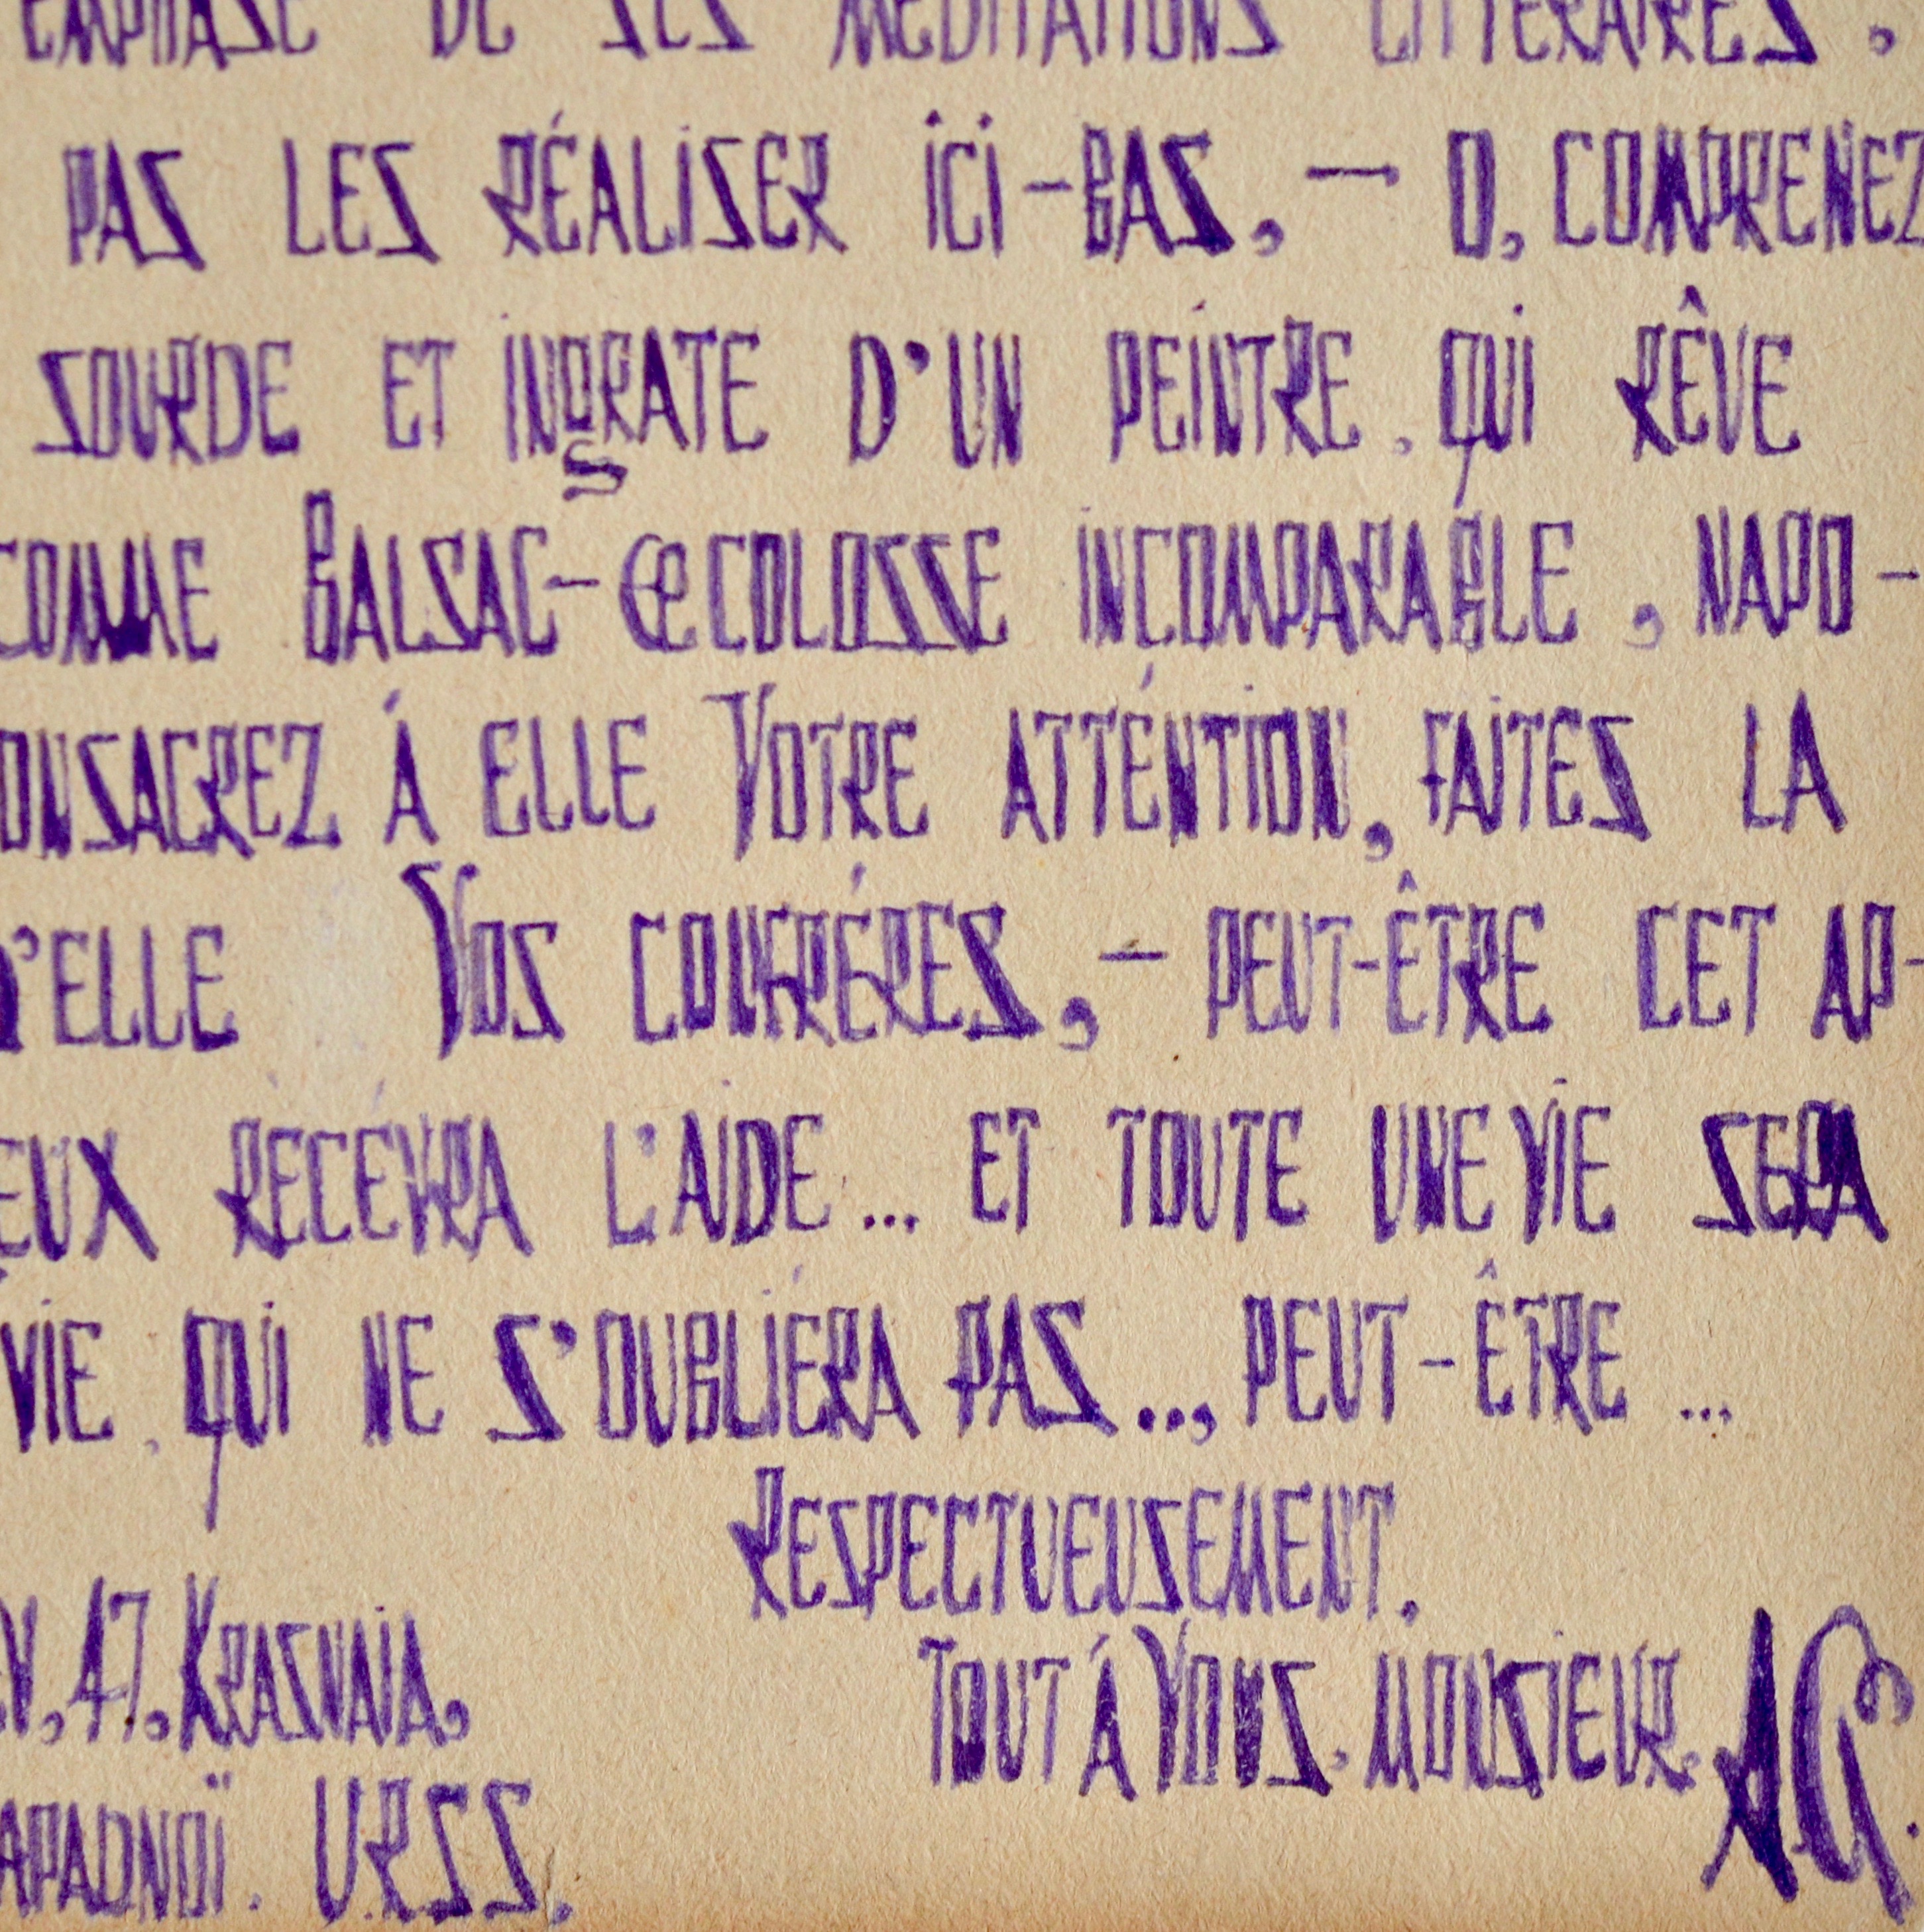 EMPHASE DE SES MÉDITATIONS LITTÉRAIRES.
PAS LES RÉALISER ICI-BAS, — O, COMPRENEZ
SOURDE ET INGRATE D'UN PEINTRE, QUI RÊVE
COMME BALSAC-CE COLOSSE INCOMPARABLE, NAPO-
ONSACREZ Á ELLE VOTRE ATTÉNTION, FAITES LA
D'ELLE VOS CONFRÉRES, — PEUT-ÊTRE CET AP-
EUX RECÉVRA L'AIDE... ET TOUTE UNE VIE SERA
VIE, QUI NE S'OUBLIÉRA PAS..., PEUT-ÊTRE...
RESPECTUEUSEMENT.
TOUT Á VOUS, MONSIEUR, AG.
V, 47, KRASNAIA,
APADNOÏ. URSS.